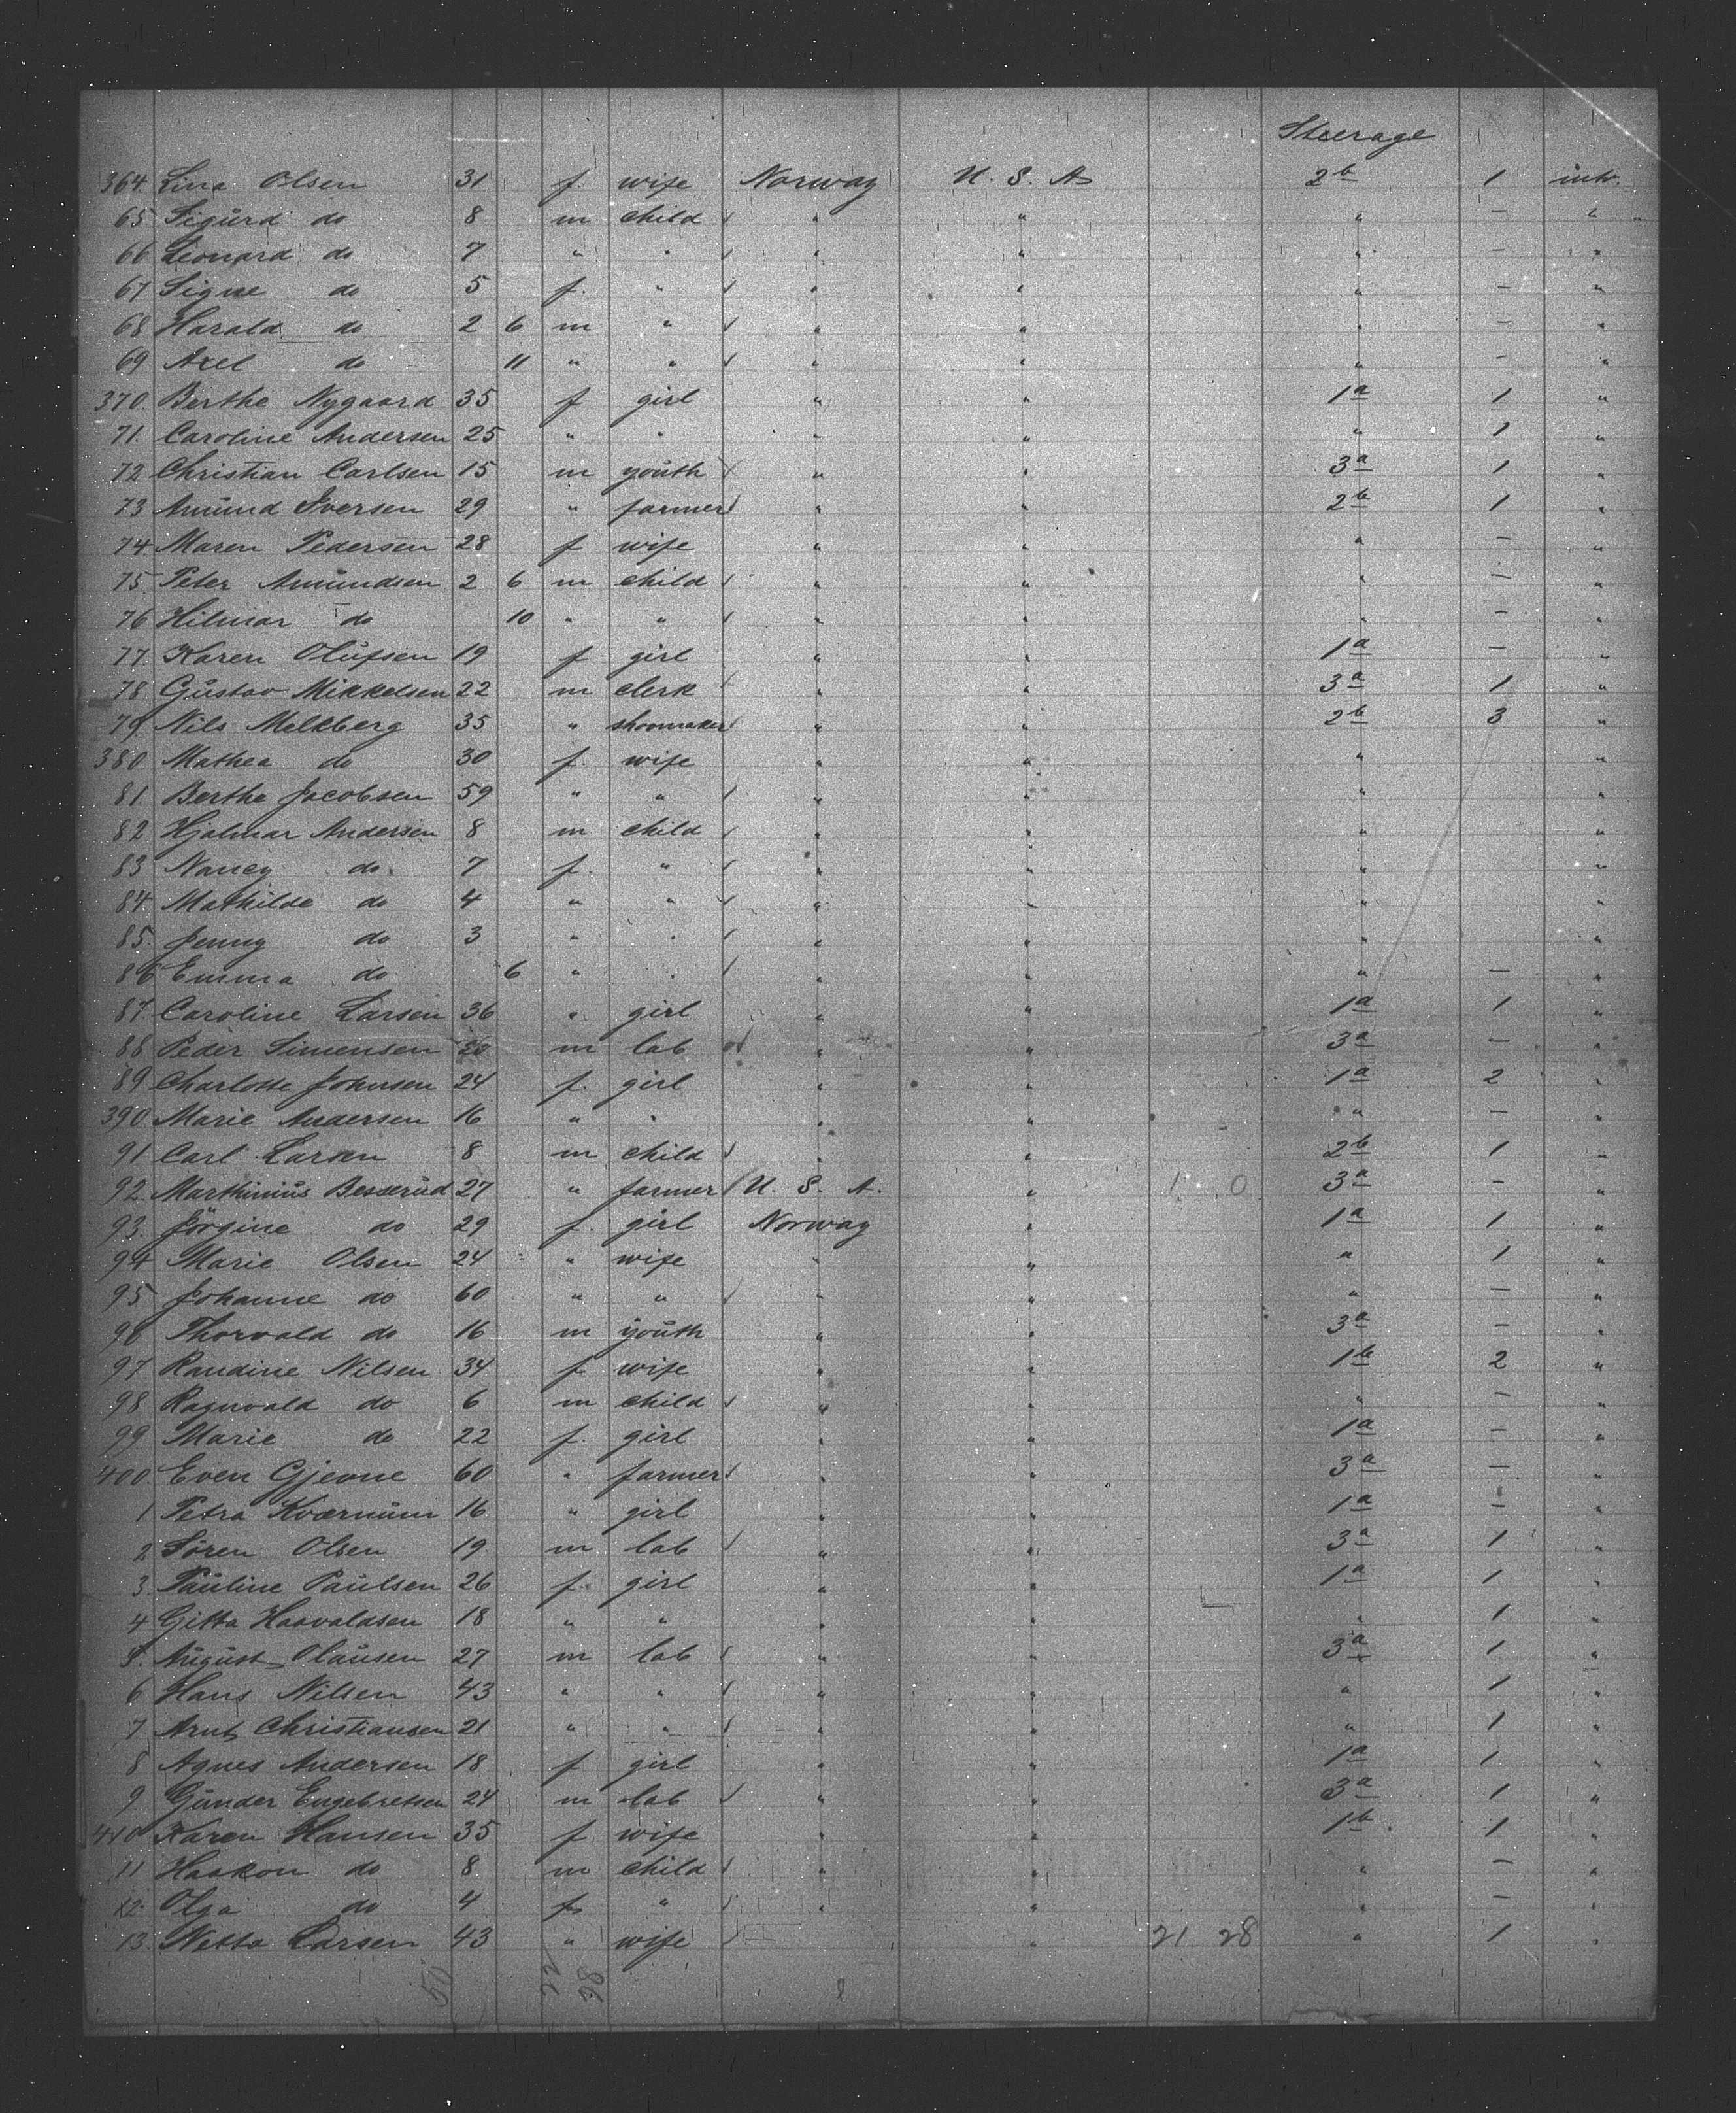 Steerage
364. Lina Olsen 31 f. wife Norway U. S. A 2b 1 intr.
65 Sigurd do 8 m child " " " — "
66 Leonard do 7 " " " " " — "
67 Signe do 5 f. " " " " — "
68 Harald do 2 6 m " " " " — "
69 Axel do 11 " " " " " — "
370. Berthe Nygaard 35 f girl " " 1a 1 "
71. Caroline Andersen 25 " " " " " 1 "
72 Christian Carlsen 15 m youth " " 3a 1 "
73 Amund Iversen 29 " farmer " " 2b 1 "
74. Maren Pedersen 28 f wife " " " — "
75. Peter Amundsen 2 6 m child " " " — "
76 Hilmar do 10 " " " " " — "
77. Karen Olufsen 19 f girl " " 1a — "
78 Gustav Mikkelsen 22 m clerk " " 3a 1 "
79. Nils Melkberg 35 " shoomaker " " 2b 3 "
380 Mathea do 30 f. wife " " " "
81. Berthe Jacobsen 59 " " " " " "
82 Hjalmar Andersen 8 m child " " " "
83 Nancy do. 7 f. " " " " "
84. Mathilde do 4 " " " " " "
85. Jenny do 3 " " " " " "
86 Emma do 6 " " " " " — "
87. Caroline Larsen 36 " girl " " 1a 1 "
88 Peder Simensen 20 m lab " " 3a — "
89 Charlotte Johnsen 24 f. girl " " 1a 2 "
390 Marie Andersen 16 " " " " " — "
91 Carl Larsen 8 m child " " 2b 1 "
92. Marthinius Besserud 27 " farmer U. S. A. " 1 0 3a — "
93. Jörgine do 29 f. girl Norway " 1a 1 "
94 Marie Olsen 24 " wife " " " 1 "
95 Johanne do 60 " " " " " — "
96 Thorvald do 16 m youth " " 3a — "
97 Randine Nilsen 34 f wife " " 1b 2 "
98 Ragnvald do 6 m child " " " — "
99 Marie do 22 f. girl " " 1a — "
400. Even Gjevne 60 " farmer " " 3a — "
1 Petra Kværnum 16 " girl " " 1a — "
2 Sören Olsen 19 m lab " " 3a 1 "
3. Pauline Paulsen 26 f. girl " " 1a 1 "
4 Gitta Haavaldsen 18 " " " " " 1 "
5. August Olausen 27 m lab " " 3a 1 "
6 Hans Nilsen 43 " " " " " 1 "
7 Arnt Christiansen 21 " " " " " 1 "
8 Agnes Andersen 18 f girl " " 1a 1 "
9 Gunder Engebretsen 24 m lab " " 3a 1 "
410 Karen Hansen 35 f wife " " 1b 1 "
11 Haakon do 8 m child " " " — "
12. Olga do 4 f " " " " — "
13. Netta Larsen 43 " wife " 21 28 " 1 "
50 22 28